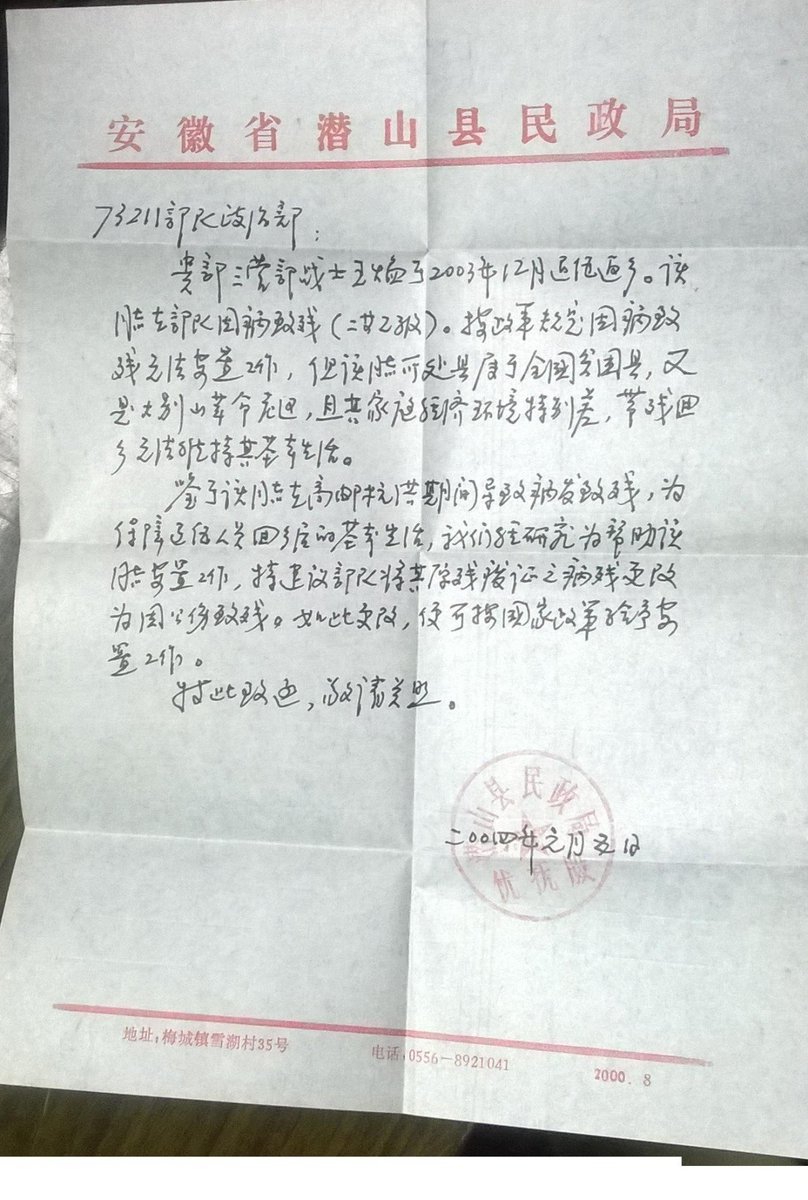 安徽省潜山县民政局
73211部队政治部：
贵部三营部战士王焰于2003年12月退伍返乡。该
同志在部队因病致残（二等乙级）。按政策规定因病致
残无法安置工作，但该同志所处县属于全国贫困县，又
是大别山革命老区，且其家庭经济环境特别差，带残回
乡无法维持其基本生活。
鉴于该同志在高邮抗洪期间导致病发致残，为
保障退伍人员回乡后的基本生活，我们经研究为帮助该
同志安置工作，特建议部队将其原残废证之病残更改
为因公伤致残。如此更改，便可按国家政策给予安
置工作。
特此致函，敬请关照。
潜山县民政局
优抚股
二00四年元月五日
地址：梅城镇雪湖村35号
电话：0556—8921041
2000.8